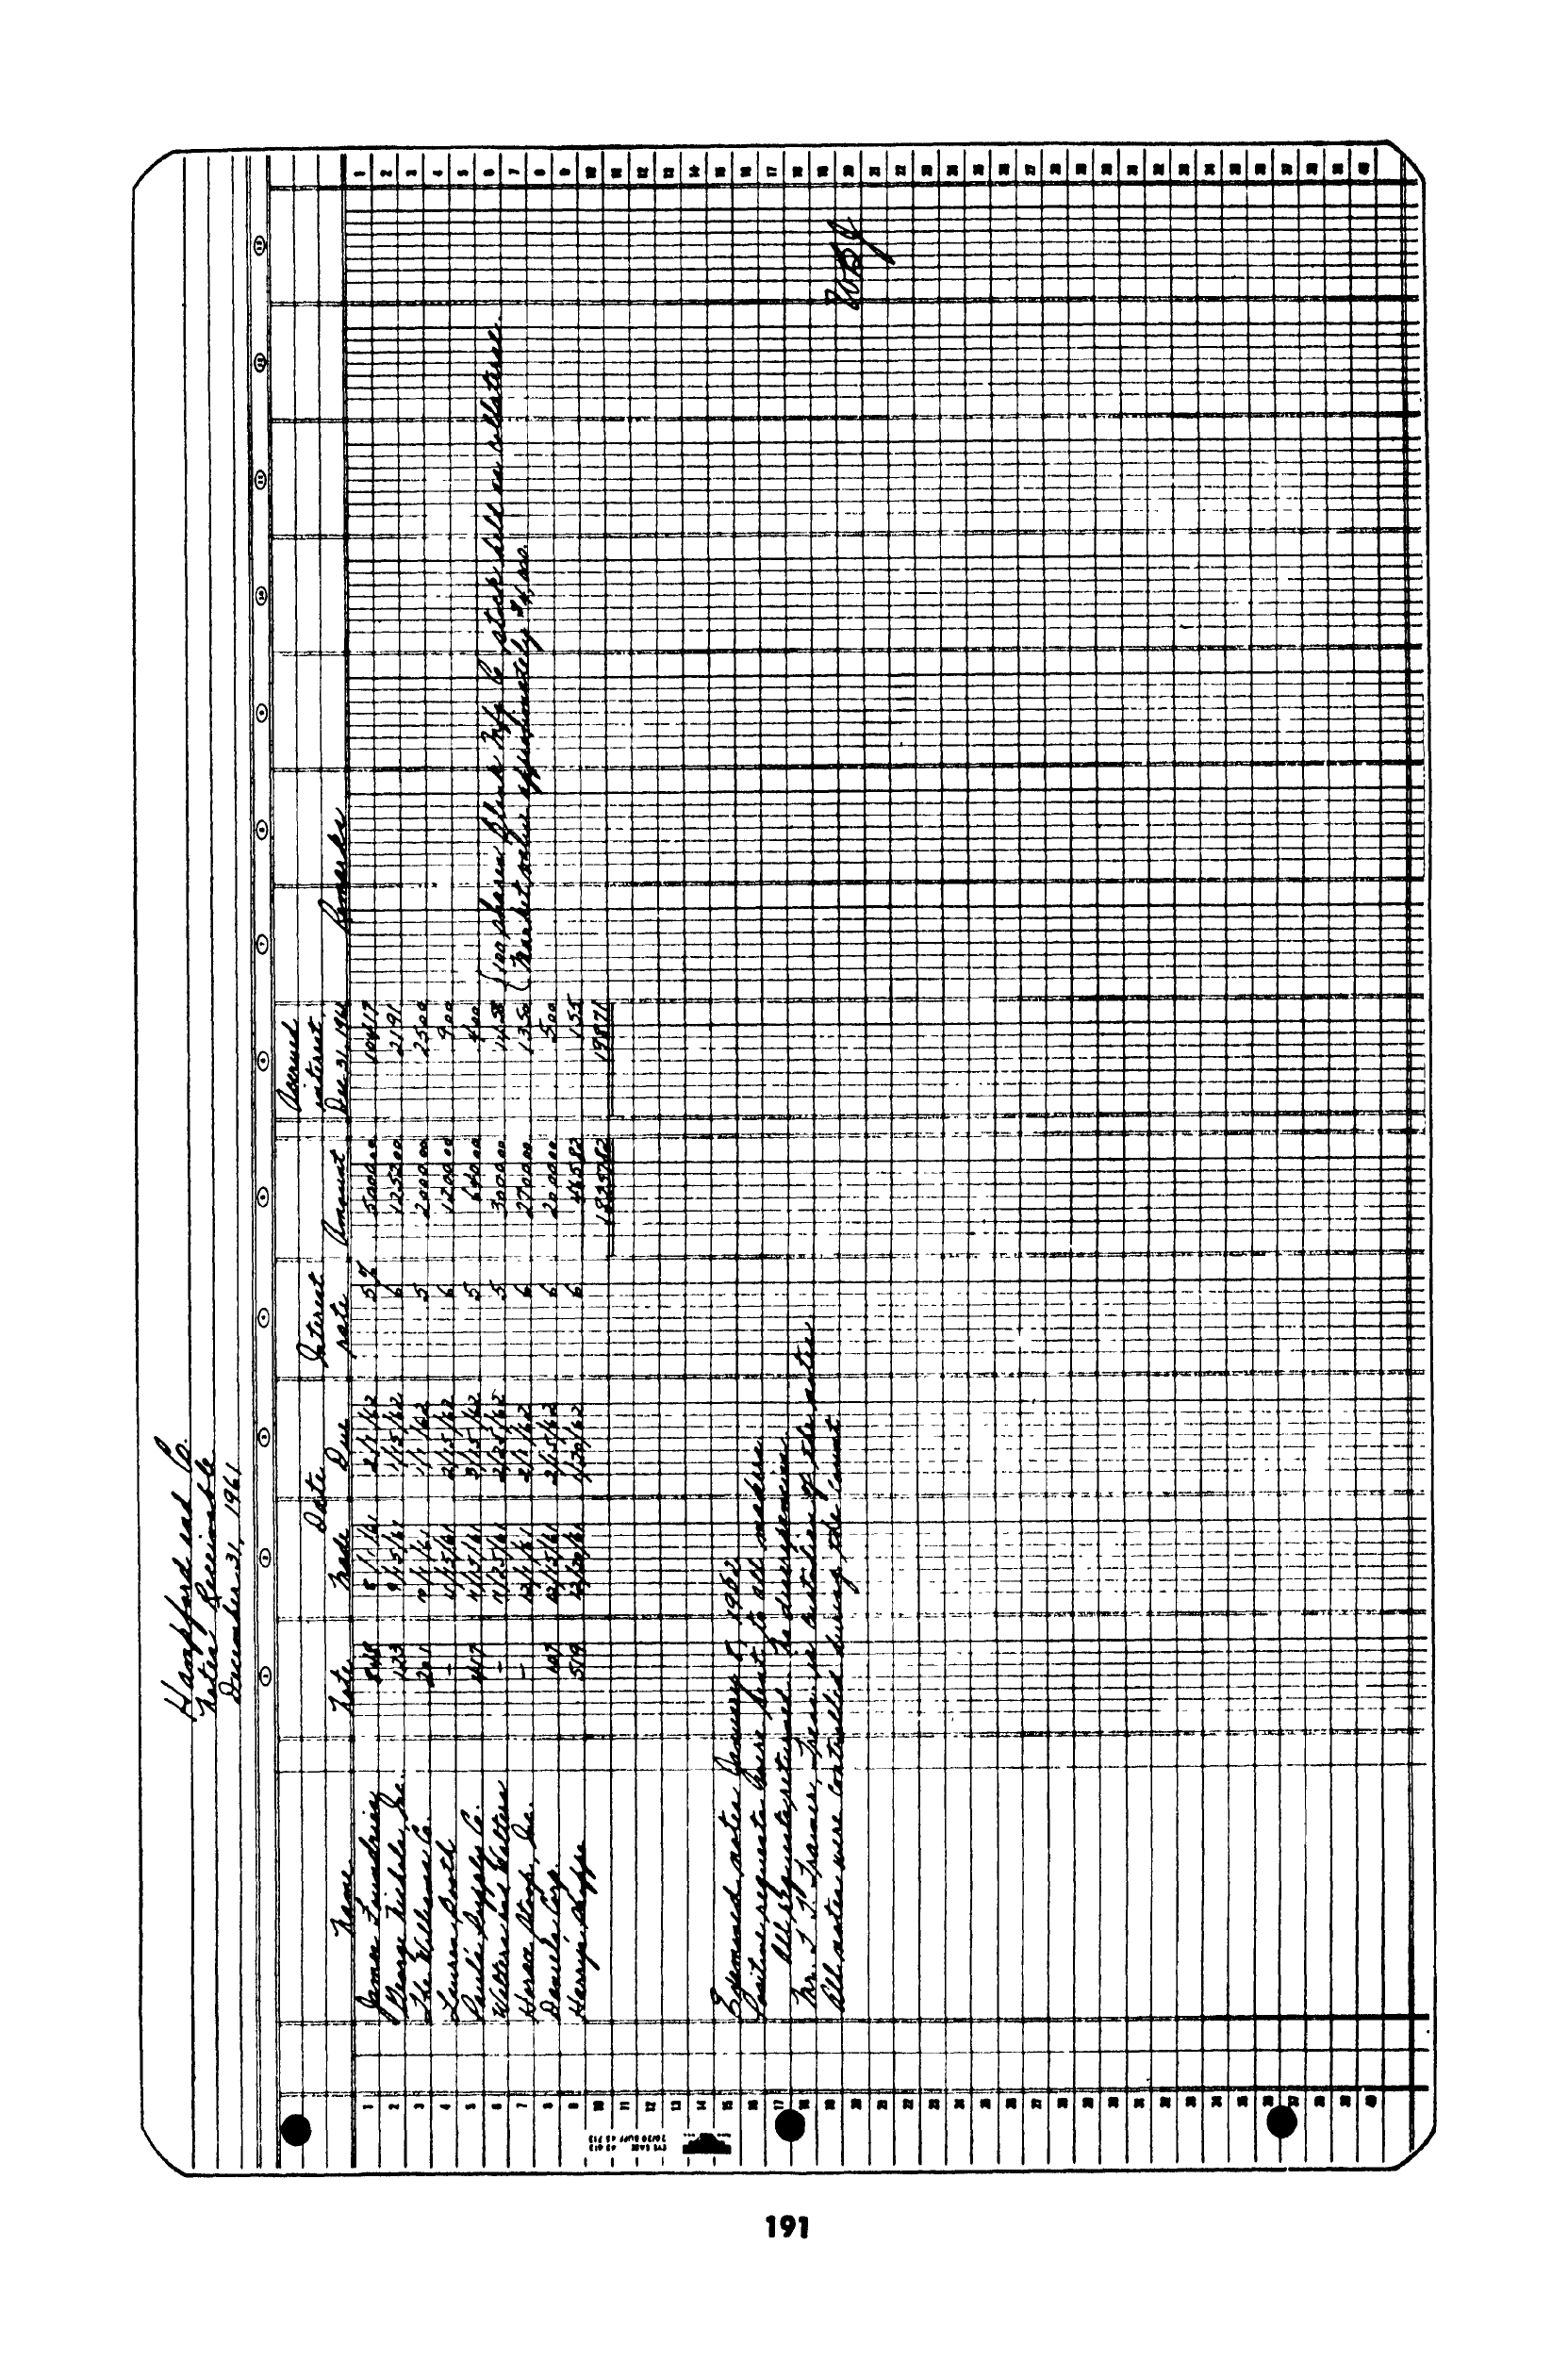 Hampford and Co.
Notes Receivable
December 31, 1961
Accrued
Date Interest interest
Name Note Made Due rate Amount Dec 31, 1961 Remarks
1 James Laundries 8/1/61 2/1/62 5% 5000 00 104 17 1
2 George Nichols, Inc. 123 9/15/61 1/15/62 6 1252 00 21 91 2
3 The Williams Co. 201 1/1/62 5 2000 00 25 00 3
4 Lauren Booth - 11/15/61 2/15/62 6 1200 00 9 00 4
5 Paul's Supply Co. 11/15/61 3/15/62 5 640 00 4 00 5
6 Walters and Walters - 11/25/61 2/25/62 5 3000 00 14 58 (100 shares Blink Mfg Co stock held as collateral. 6
7 Horace Strap, Inc. - 12/1/61 2/1/62 6 2700 00 13 50 (Market value approximately $4,000. 7
8 Daniels Corp. 12/15/61 2/15/62 6 2000 00 5 00 8
9 Harry's 519 12/20/61 1/20/62 6 465 82 1 55 9
10 18257 82 198 71 10
Examined notes January 5, 1962
Positive requests were sent to all makers.
All requests returned. No discrepancies.
Mr. L. T. Trainer, Treas. is custodian of the notes.
All notes were controlled during the count.
WBG
191